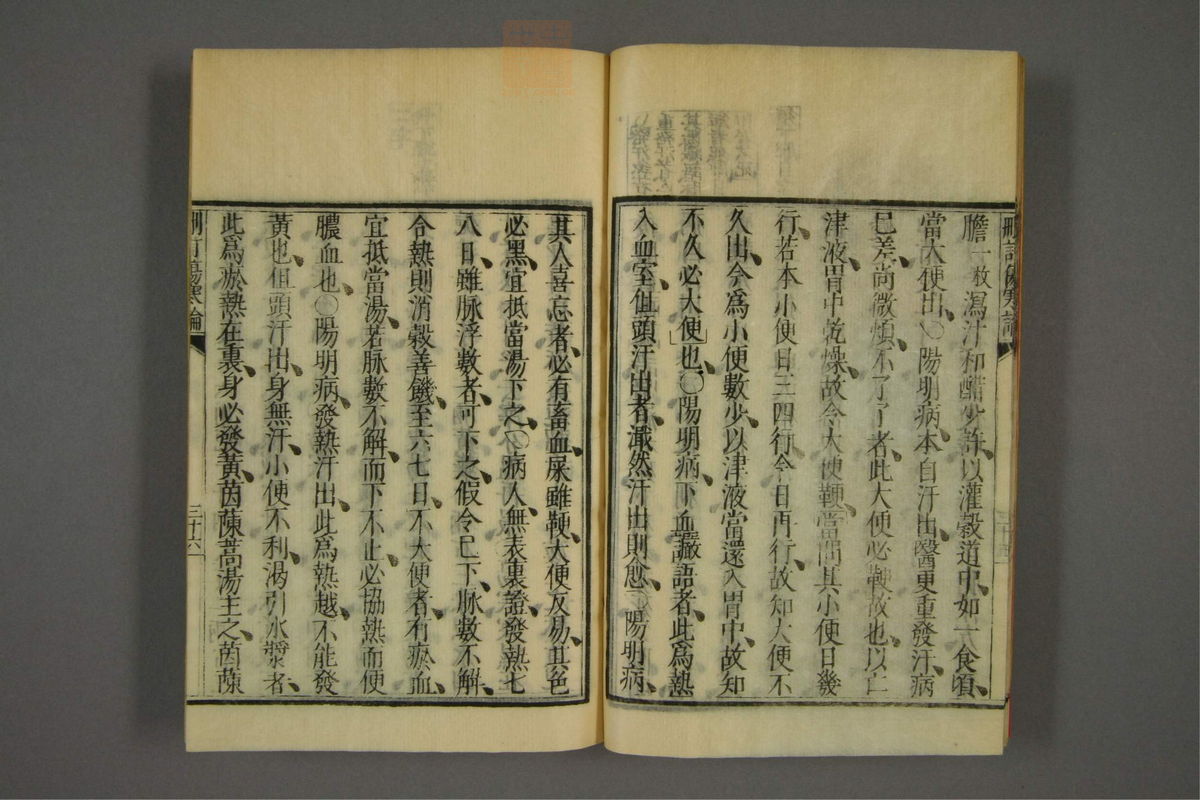 膽一枚瀉汁和醋少許以灌穀道中、如一食頃、
當大便出、○陽明病本自汗出、醫更重發汗、病
巳差、尚微煩不了了者、此大便必鞕故也、以亡
津液、胃中乾燥、故令大便鞕、當問其小便日幾
行、若本小便日三四行、今日再行、故知大便不
久出、今爲小便數少、以津液當還入胃中、故知
不久必大便也、○陽明病下血讝語者、此爲熱
入血室、但頭汗出者、濈然汗出則愈、○陽明病、
刪訂傷寒論
其人喜忘者、必有畜血、屎雖鞕、大便反易、其色
必黑、宜抵當湯下之、○病人無表裏證、發熱七
八日、雖脉浮數者、可下之、假令巳下、脉數不解、
合熱則消穀善饑、至六七日、不大便者、有瘀血、
宜抵當湯、若脉數不解、而下不止、必協熱而便
膿血也、○陽明病、發熱汗出、此爲熱越、不能發
黃也、但頭汗出、身無汗、小便不利、渴引水漿者、
此爲瘀熱在裏、身必發黃、茵蔯蒿湯主之、茵蔯
刪訂傷寒論
三十六